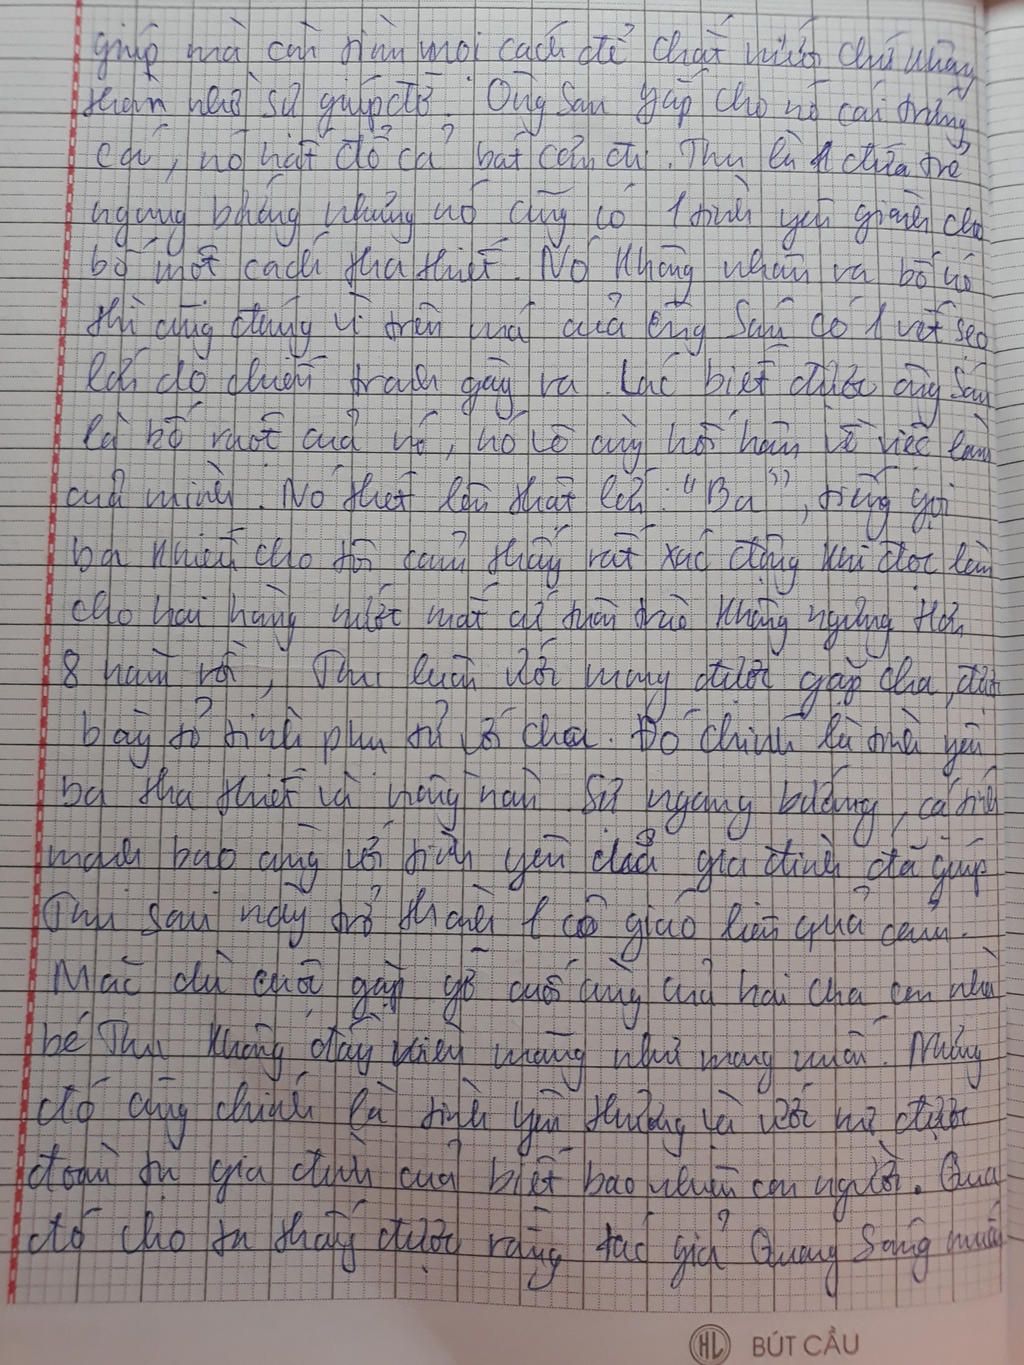 giúp mà còn tìm mọi cách để chắt nước chứ không
thèm nhờ sự giúp đỡ. Ông Sáu gắp cho nó cái trứng
cá, nó hất đổ cả bát cơm đi. Thu là 1 đứa trẻ
ngang bướng nhưng nó cũng có 1 tình yêu giành cho
bố một cách tha thiết. Nó không nhận ra bố nó
thì cũng đúng vì trên má của ông Sáu có 1 vết sẹo
lớn do chiến tranh gây ra. Lúc biết được ông Sáu
là bố ruột của nó, nó vô cùng hối hận về việc làm
của mình. Nó thét lên thật lớn: "Ba", tiếng gọi
ba khiến cho tôi cảm thấy rất xúc động khi đọc làm
cho hai hàng nước mắt cứ tuôn trào không ngừng. Hơn
8 năm rồi, Thu luôn ước mong được gặp cha, được
bày tỏ tình phụ tử với cha. Đó chính là tình yêu
ba tha thiết và nồng nàn. Sự ngang bướng, cá tính
mạnh bạo cùng với tình yêu gia đình đã giúp
Thu sau này trở thành 1 cô giáo liên quả cảm.
Mặc dù cuộc gặp gỡ cuối cùng của hai cha con nhà
bé Thu không đầy viên mãng như mong muốn. Nhưng
đó cũng chính là tình yêu thương và ước mơ được
đoàn tụ gia đình của biết bao nhiêu con người. Qua
đó cho ta thấy được rằng tác giả Quang Sáng muốn
HL BÚT CẦU